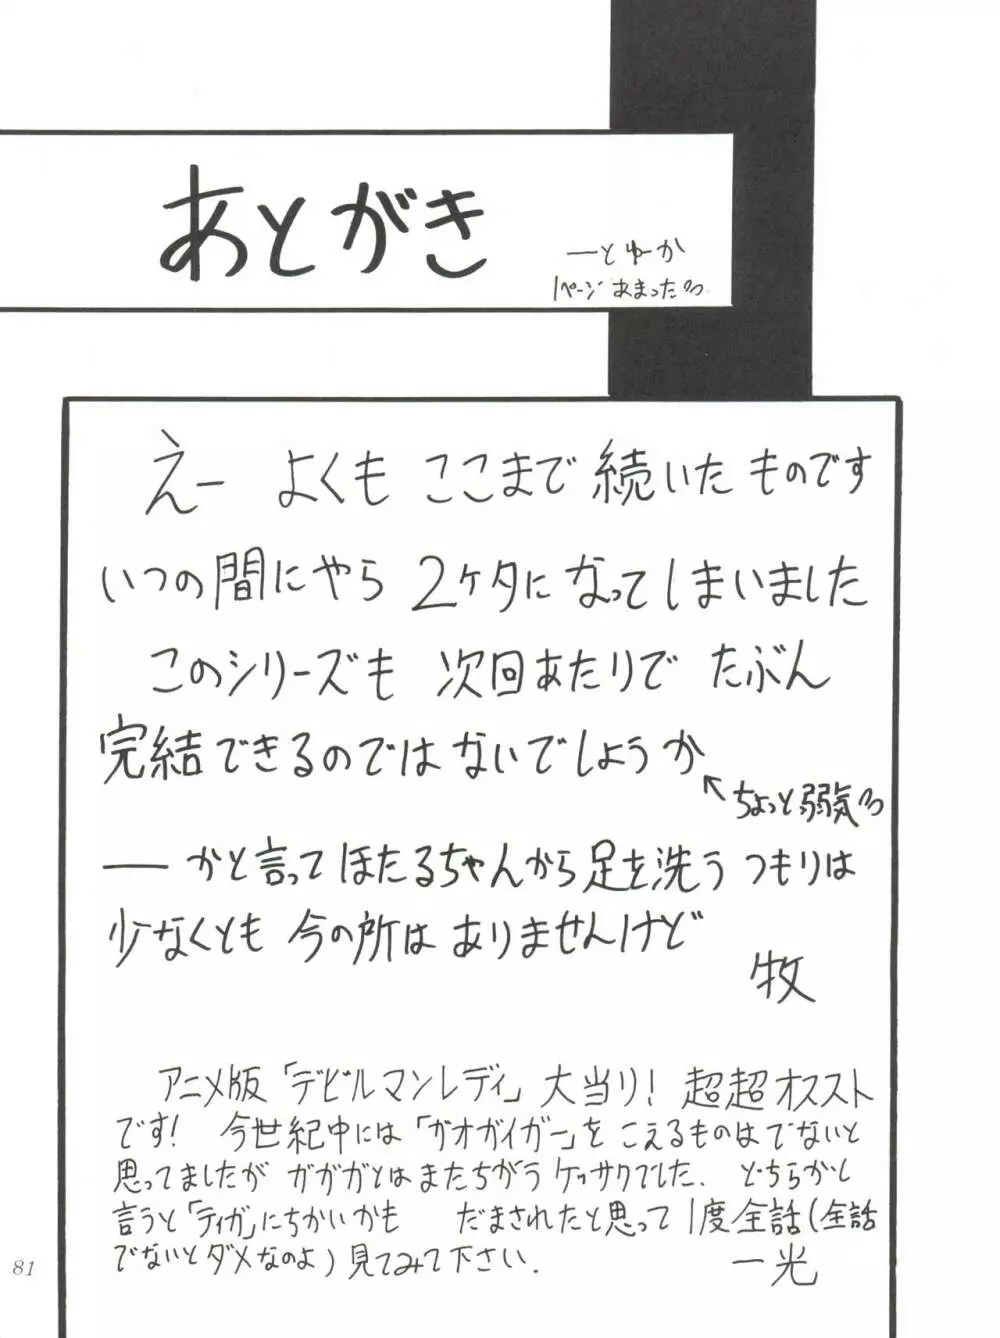 あとがき
ーとゆーか
1ページあまった
えー よくも ここまで 続いた ものです
いつの間にやら 2ケタに なってしまいました
このシリーズも 次回あたりで たぶん
完結できるのでは ないでしょうか
ちょっと弱気
── かと言って ほたるちゃんから 足を洗う つもりは
少なくとも 今の所は ありませんけど
牧
アニメ版「デビルマンレディ」大当り! 超超オススト
です! 今世紀中には「ガオガイガー」を こえるものは でないと
思ってましたが ガガガとは またちがう ケッサクでした. どちらかと
言うと「ティガ」にちかいかも だまされたと思って 1度全話(全話
でないと ダメなのよ)見てみて下さい.
一光
81